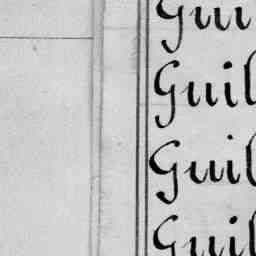 Gui
Guil
Guil
Guil